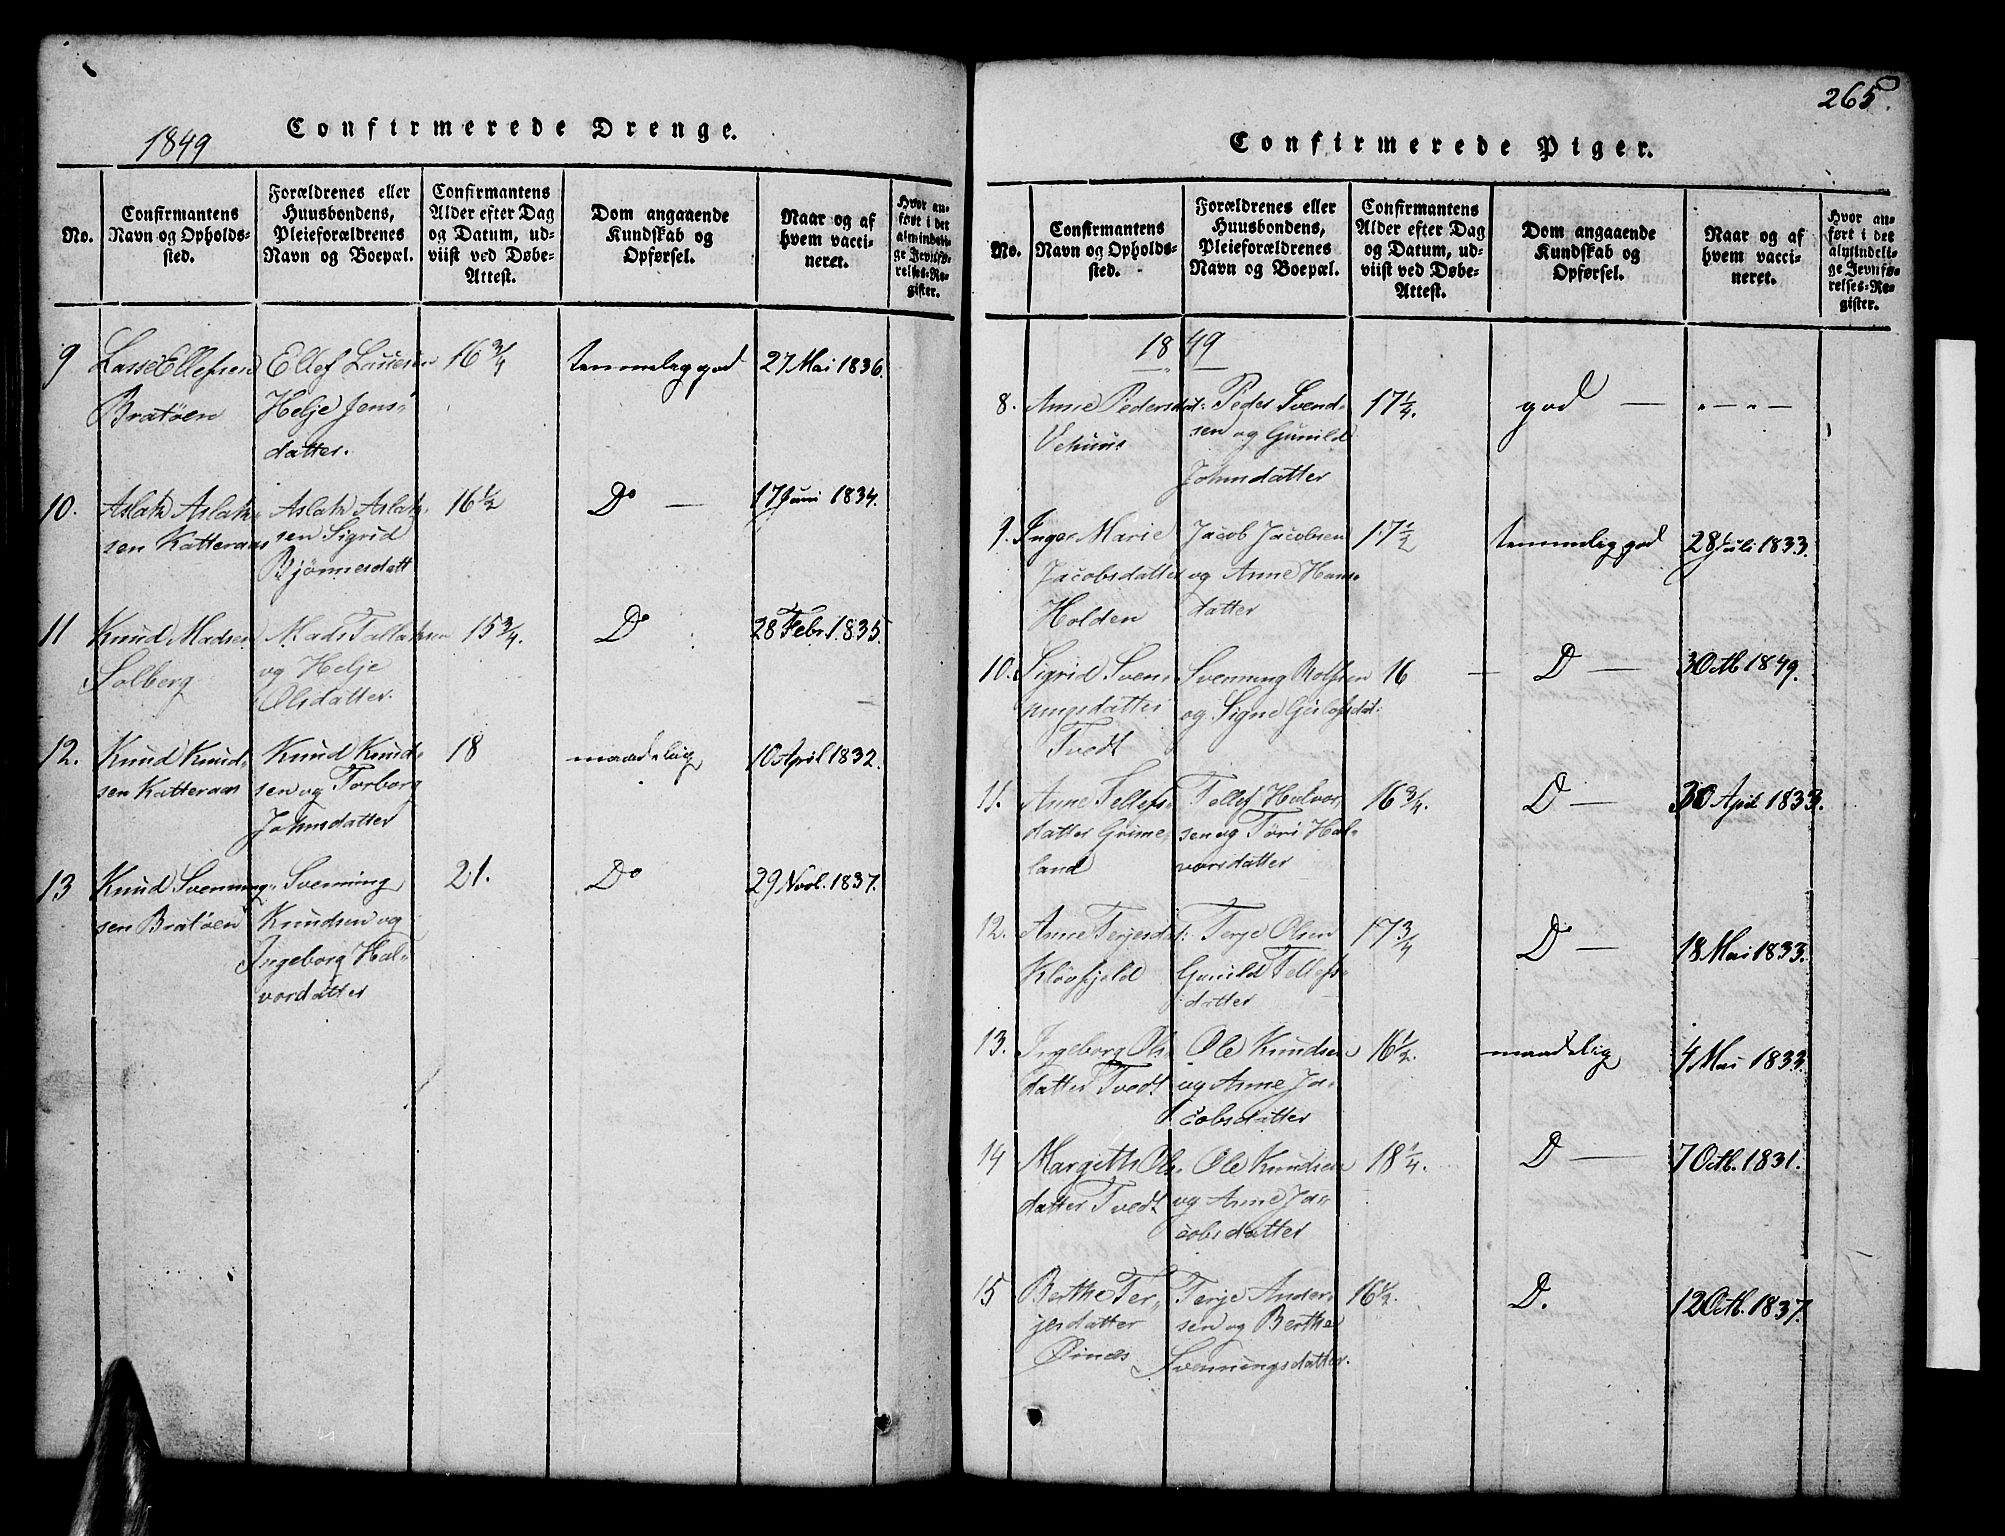 1849
Confirmerede Drenge.
No.
Confirmantens
Navn og Opholds-
sted.
Forældrenes eller
Huusbondens,
Pleieforældrenes
Navn og Boepæl.
Confirmantens
Alder efter Dag
og Datum, ud-
viist ved Døbe-
Attest.
Dom angaaende
Kundskab og
Opførsel.
Naar og af
hvem vacci-
neret.
Hvor an-
ført i det
almindeli-
ge Jevnfø-
relses-Re-
gister.
9
Lasse Ellefsen
Bratöen
Ellef
Helje Jens-
datter.
16 3/4
temmelig god
27 Mai 1836.
10.
Aslak Aslak-
sen Katteraas
Aslak Aslak-
sen Sigrid
Bjönnesdatt
16 1/2
Do —
17 Juni 1834.
11
Knud Madsen
Solberg
Mads Tallaksen
og Helje
Olsdatter.
15 3/4.
Do
28 Febr. 1835.
12.
Knud Knud-
sen Katteraas
Knud Knud-
sen og Torborg
Johnsdatter
18
maadelig
10 April 1832.
13
Knud Svenning-
sen Bratöen
Svenning
Knudsen og
Ingeborg Hal-
vordatter
21.
Do
29 Novb. 1837.
265.
Confirmerede Piger.
No.
Confirmantens
Navn og Opholds-
sted.
Forældrenes eller
Huusbondens,
Pleieforældrenes
Navn og Boepæl.
Confirmantens
Alder efter Dag
og Datum, ud-
viist ved Døbe-
Attest.
Dom angaaende
Kundskab og
Opførsel.
Naar og af
hvem vacci-
neret.
Hvor an-
ført i det
almindeli-
ge Jevnfø-
relses-Re-
gister.
1849
8.
Anne Pedersdat:
Vehuus
Peder Svend-
sen og Gunild
Johnsdatter
17 1/4.
god —
" — " —
9.
Inger Marie
Jacobsdatter
Holden
Jacob Jacobsen
og Anne Hans-
datter
17 1/2
temmelig god
28 Juli 1833.
10.
Sigrid Sven-
ningsdatter
Tvedt
Svenning Rolfsen
og Signe
16
— D —
3 Octb. 1849.
11.
Anne Tellefs-
datter Grime-
land
Tellef Halvor-
sen og Töri Hal-
vorsdatter
16 3/4.
D —
30 April 1833.
12.
Anne Terjesdat:
Klövfjeld
Terje Olsen
Gunild Tellefs-
datter
17 3/4
D —
18 Mai 1833.
13.
Ingeborg Ols-
datter Tvedt
Ole Knudsen
og Anne Ja-
cobsdatter
16 1/2.
maadelig
4 Mai 1833
14
Margith Ols-
datter Tvedt
Ole Knudsen
og Anne Ja-
cobsdatter
18 1/4.
D —
7 Octb. 1831.
15
Berthe Ter-
jesdatter
Öinæs
Terje Ander-
sen og Berthe
Svenningsdatter.
16 1/2.
D.
12 Octb. 1837.